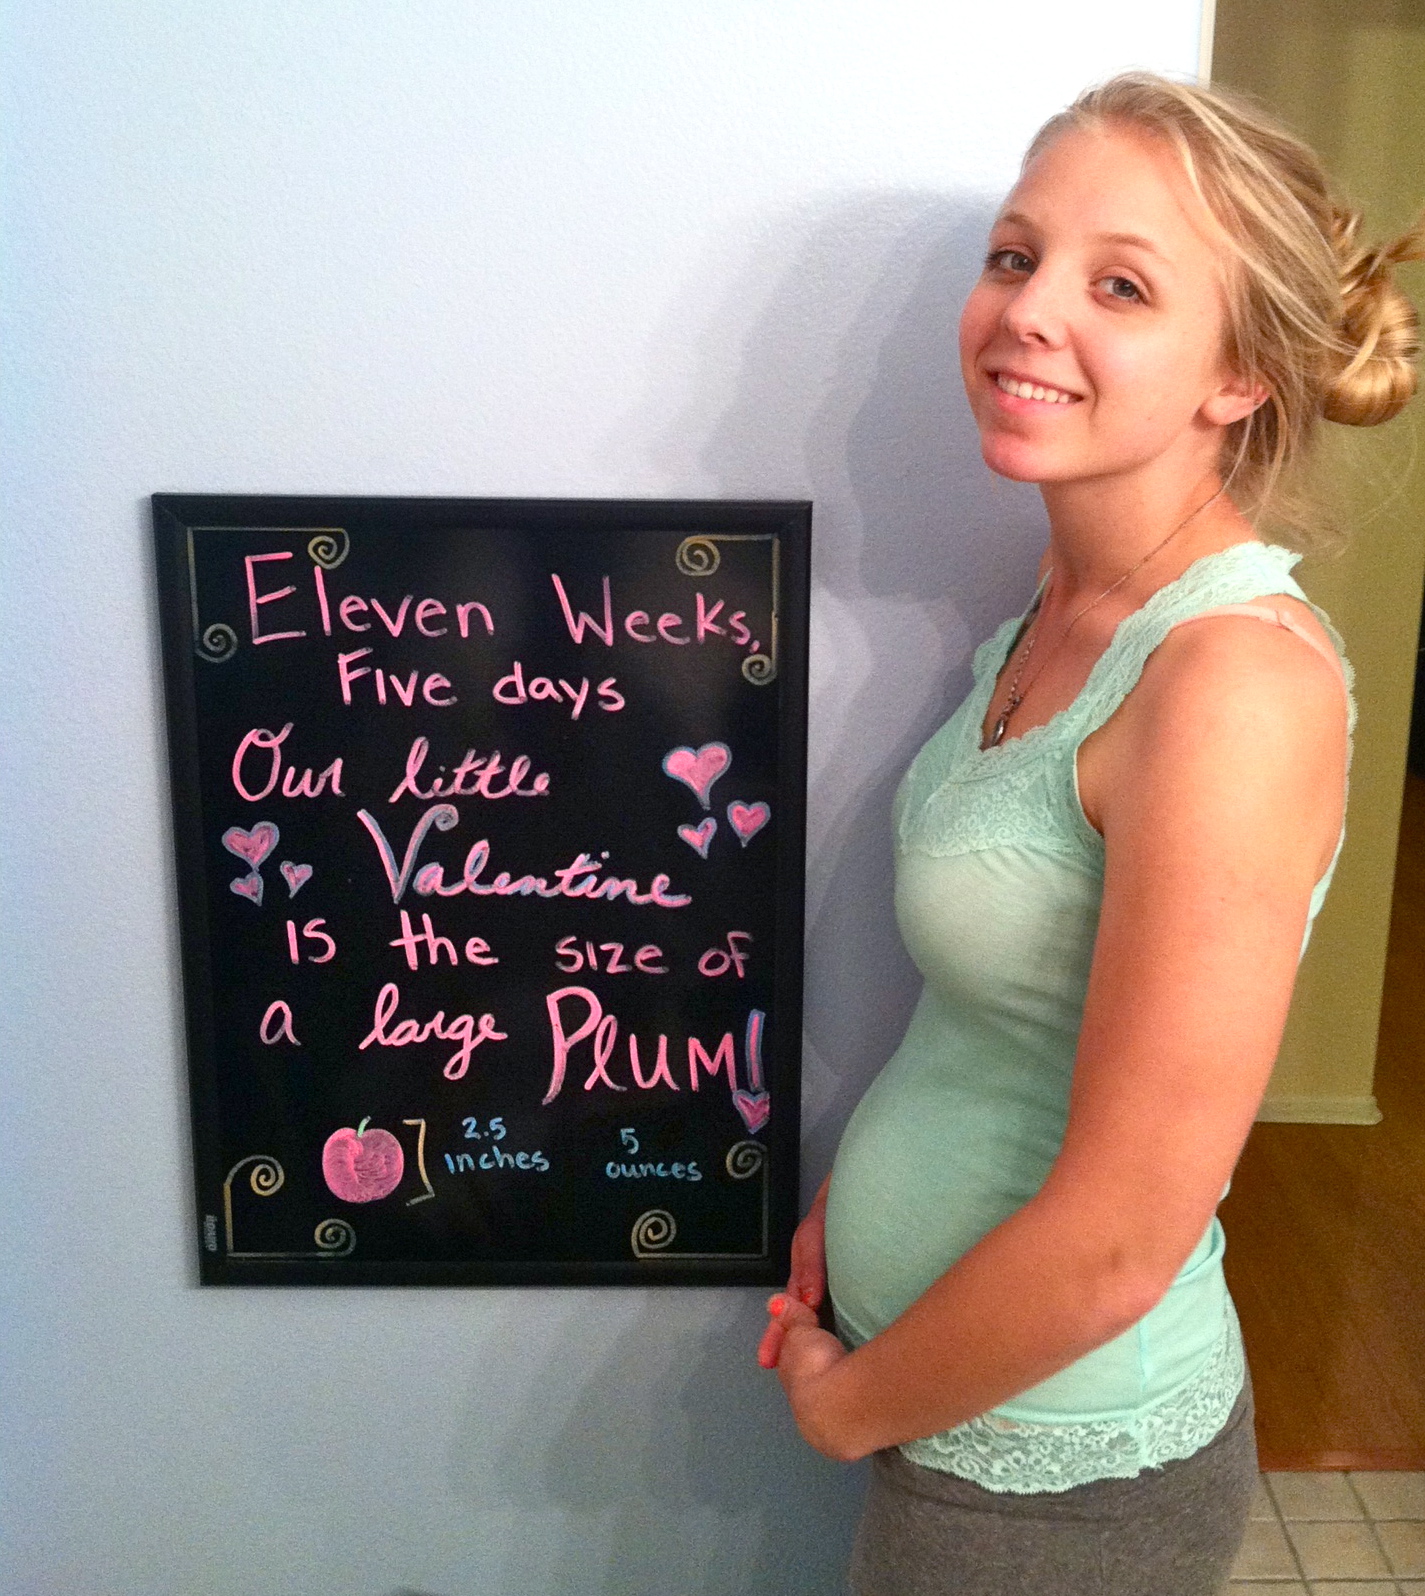 Eleven Weeks,
Five days
Our little
Valentine
is the size of
a large Plum!
2.5
inches
5
ounces